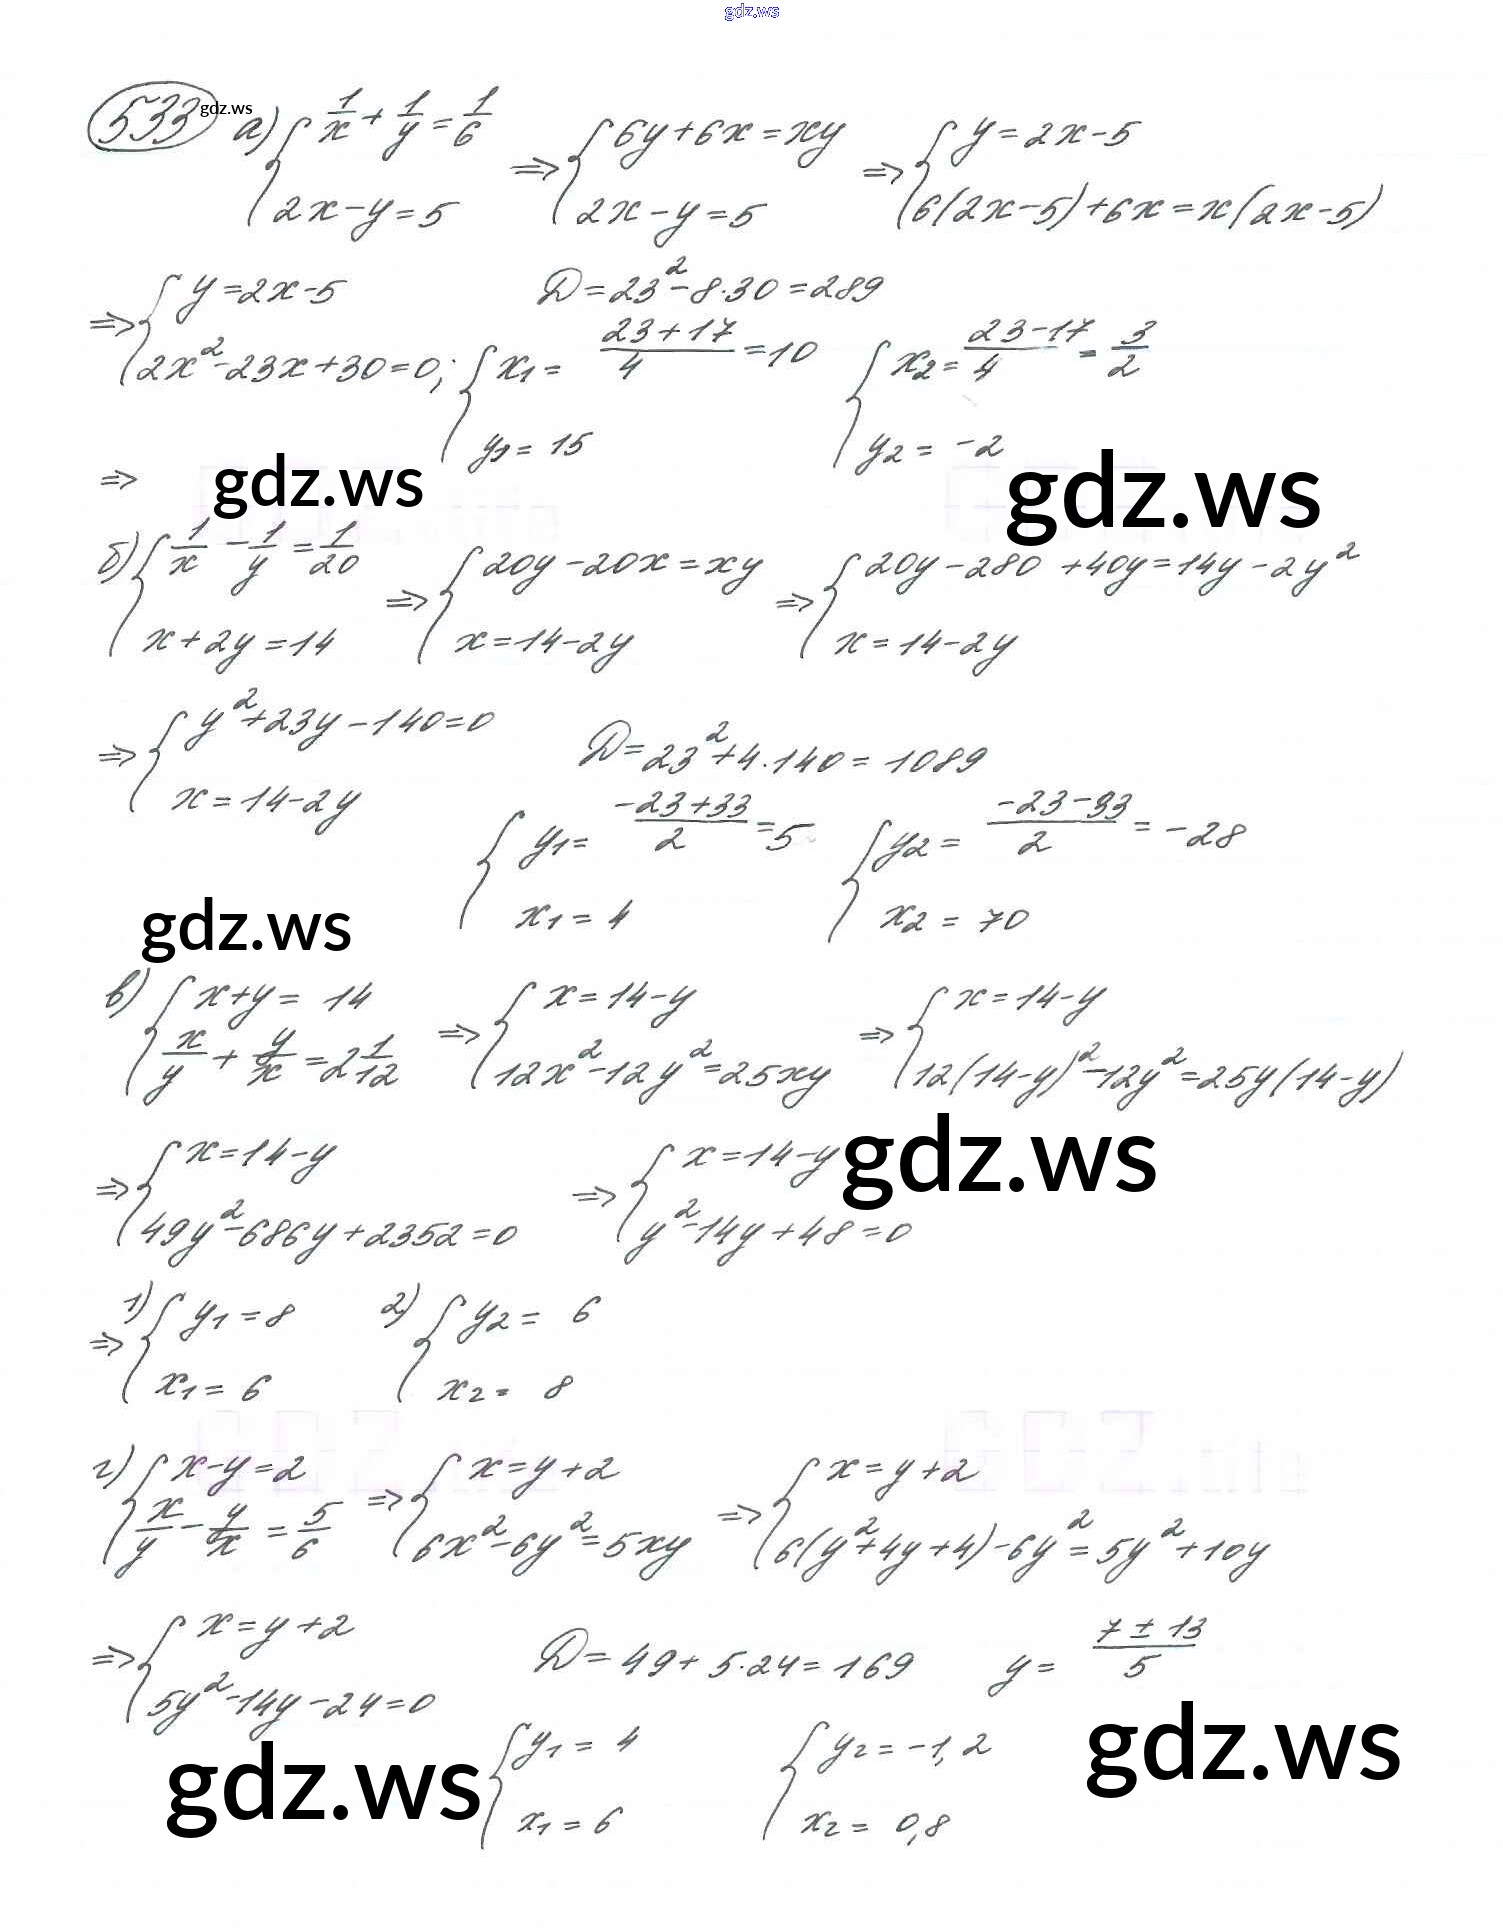 gdz.ws
533 gdz.ws а) { 1/x + 1/y = 1/6 ; 2x - y = 5 ⇒ { 6y + 6x = xy ; 2x - y = 5 ⇒ { y = 2x - 5 ; 6(2x - 5) + 6x = x(2x - 5)
⇒ { y = 2x - 5 ; 2x² - 23x + 30 = 0; D = 23² - 8·30 = 289
{ x₁ = (23 + 17)/4 = 10 ; y₁ = 15 { x₂ = (23 - 17)/4 = 3/2 ; y₂ = -2
⇒ gdz.ws gdz.ws
б) { 1/x - 1/y = 1/20 ; x + 2y = 14 ⇒ { 20y - 20x = xy ; x = 14 - 2y ⇒ { 20y - 280 + 40y = 14y - 2y² ; x = 14 - 2y
⇒ { y² + 23y - 140 = 0 ; x = 14 - 2y D = 23² + 4·140 = 1089
{ y₁ = (-23 + 33)/2 = 5 ; x₁ = 4 { y₂ = (-23 - 33)/2 = -28 ; x₂ = 70
gdz.ws
в) { x + y = 14 ; x/y + y/x = 2 1/12 ⇒ { x = 14 - y ; 12x² - 12y² = 25xy ⇒ { x = 14 - y ; 12(14 - y)² - 12y² = 25y(14 - y)
⇒ { x = 14 - y ; 49y² - 686y + 2352 = 0 ⇒ { x = 14 - y ; y² - 14y + 48 = 0 gdz.ws
⇒ 1) { y₁ = 8 ; x₁ = 6 2) { y₂ = 6 ; x₂ = 8
г) { x - y = 2 ; x/y - y/x = 5/6 ⇒ { x = y + 2 ; 6x² - 6y² = 5xy ⇒ { x = y + 2 ; 6(y² + 4y + 4) - 6y² = 5y² + 10y
⇒ { x = y + 2 ; 5y² - 14y - 24 = 0 D = 49 + 5·24 = 169 y = (7 ± 13)/5
gdz.ws { y₁ = 4 ; x₁ = 6 { y₂ = -1,2 ; x₂ = 0,8 gdz.ws